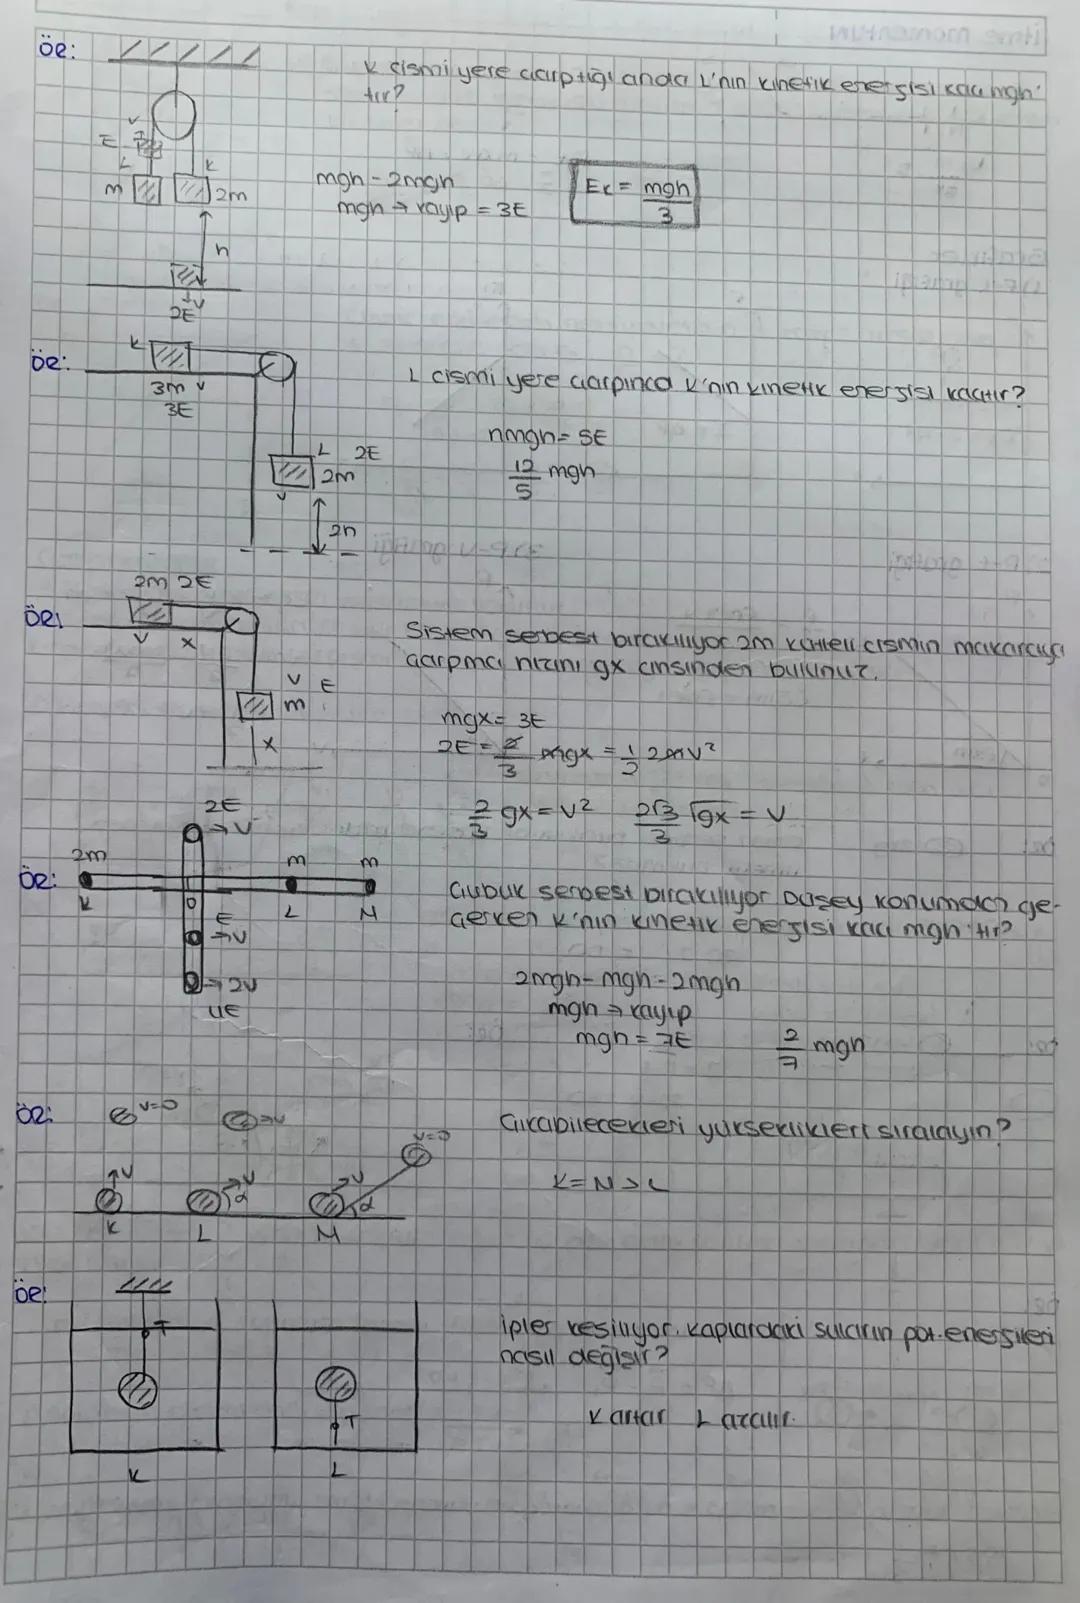 ör:
K cismi yere çarptığı anda L'nin kinetik enerjisi kaç mgh'
tır?
V
E
L
K
m
2m
mgh - 2mgh
mgh → kayıp = 3E
Ek = mgh/3
h
V
2E
ör:
K
3m V
3E
L cismi yere çarpınca K'nin kinetik enerjisi kaçtır?
L 2E
2m
V
2h
= 5E
12/5 mgh
2m 2E
ör:
V
x
Sistem serbest bırakılıyor 2m kütleli cismin makaraya
çarpma hızını gx cinsinden bulunuz.
V E
m
x
mgx = 3E
2E = 2/3 mgx = 1/2 2mv²
2/3 gx = v² 2√3/3 √gx = v
2E
→V
ör:
2m
m
m
K
O
L
M
E
→V
→2V
4E
Çubuk serbest bırakılıyor Düşey konumdan ge-
çerken K'nin kinetik enerjisi kaç mgh'tır?
2mgh - mgh - 2mgh
mgh → kayıp
mgh = 7E
2/7 mgh
ör:
V=0
→V
V=0
Çıkabilecekleri yükseklikleri sıralayın?
K = M > L
V
V
α
V
α
K
L
M
ör:
T
T
K
L
İpler kesiliyor. Kaplardaki suların pot. enerjileri
nasıl değişir?
K artar L azalır.